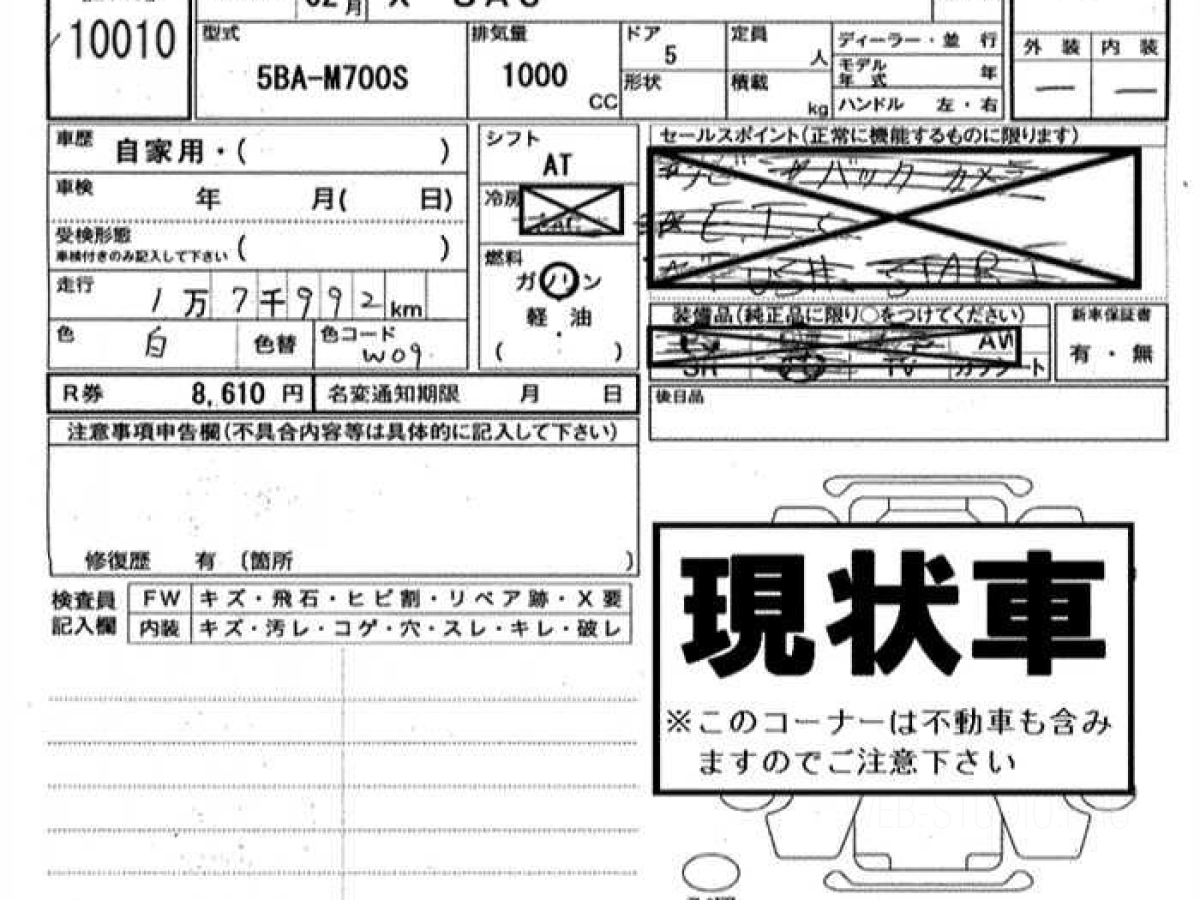 02月
10010
型式
5BA-M700S
排気量
1000
CC
ドア
5
形状
定員
人
積載
kg
ディーラー・並 行
モデル
年 式
年
ハンドル 左・右
外 装 内 装
— —
車歴
自家用・( )
車検
年 月( 日)
受検形態
車検付きのみ記入して下さい ( )
走行
1万7千992km
色
白
色替
色コード
W09
シフト
AT
冷房
燃料
ガ ソ リ ン
軽・油
( )
セールスポイント(正常に機能するものに限ります)
バック カメラ
E.T.C
PUSH START
装備品(純正品に限り○をつけてください)
AW
SR
TV
新車保証書
有・無
R券 8,610 円
名変通知期限 月 日
後日品
注意事項申告欄(不具合内容等は具体的に記入して下さい)
修復歴 有 〔箇所 )
検査員
記入欄
FW キズ・飛石・ヒビ割・リペア跡・X要
内装 キズ・汚レ・コゲ・穴・スレ・キレ・破レ
現状車
※このコーナーは不動車も含み
ますのでご注意下さい